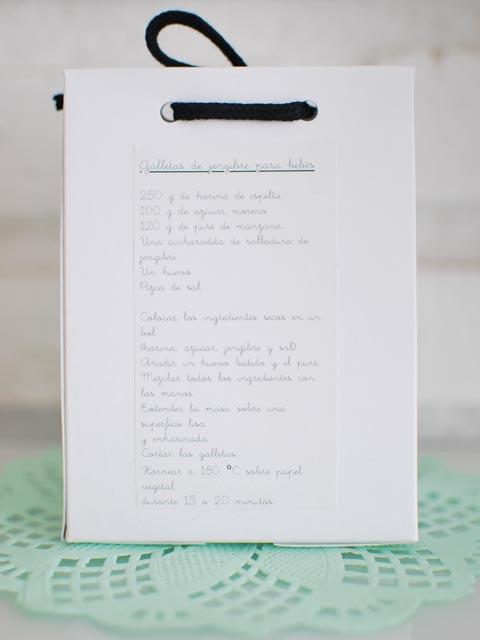 Galletas de jengibre para bebés
250 g de harina de espelta
100 g de azúcar moreno
120 g de puré de manzana
Una cucharadita de ralladura de
jengibre
Un huevo
Pizca de sal
Colocar los ingredientes secos en un
bol
(harina, azúcar, jengibre y sal)
Añadir un huevo batido y el puré.
Mezclar todos los ingredientes con
las manos.
Extender la masa sobre una
superficie lisa
y enharinada
Cortar las galletas.
Hornear a 180 ºC sobre papel
vegetal
durante 15 o 20 minutos.